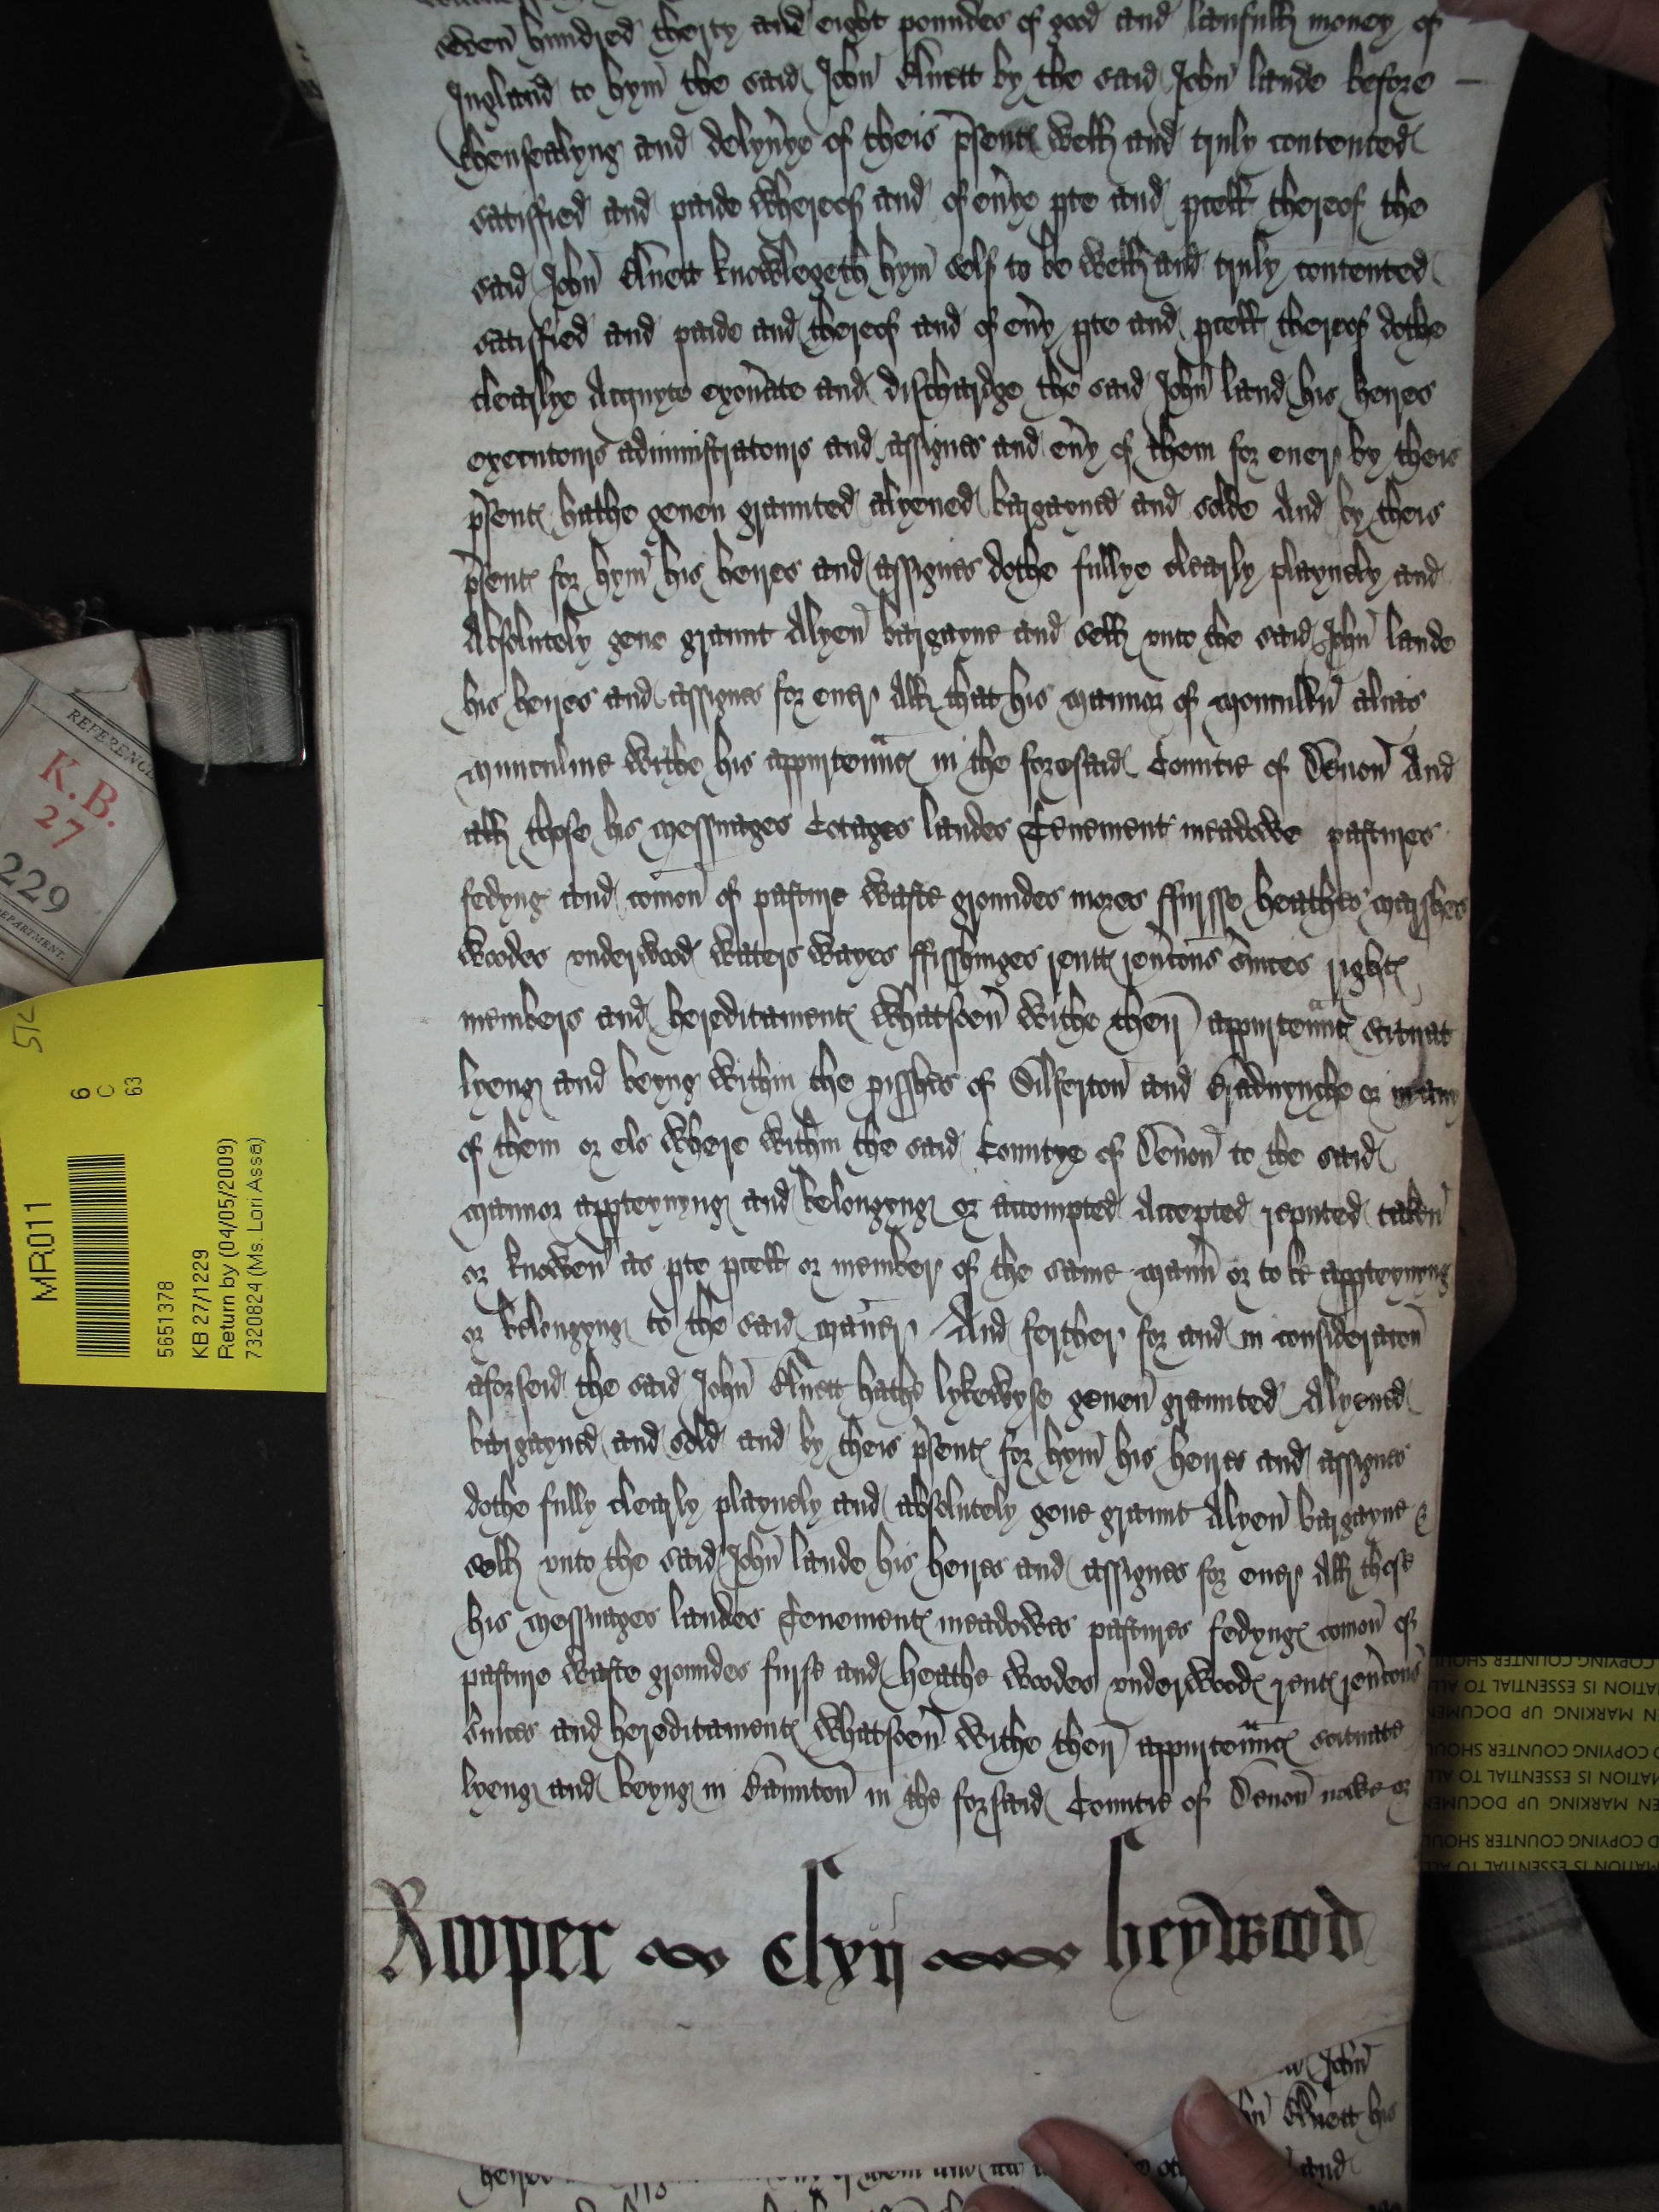 seven hundred therty and eight poundes of good and laufull money of
Ingland to hym the said John Evett by the said John Lande before
thensealyng and delyvye of theis psent well and truly contented
satisfied and paide whereof and of evye pte and pcell thereof the
said John Evett knowlegeth hym self to be well and truly contented
satisfied and paide and thereof and of evy pte and pcell thereof dothe
clearlye Acquyte exonate and dischardge the said John Land his heires
executours administratours and assignes and evy of them for ever by theis
psent hathe geven graunted alyened bargayned and solde And by theis
psent for hym his heires and assignes dothe fullye clearly playnely and
Absolutely geve graunt Alyen bargayne and sell unto the said John Lande
his heires and assignes for ever All that his mannor of alias
withe his appurtennc in the foresaid Countie of Devon And
all those his messuages Cotages landes Tenement meadowe pastures
fedyng and comon of pasture waste groundes mores ffursse heathes marshes
woodes underwood waters wayes ffisshinges rentt revcons svices right
members and hereditament whatsoev withe their appurtennt scituat
lyeng and beyng within the pisshes of Silferton and Bradnynche or in any
of them or els where within the said Countye of Devon to the said
mannor appteynyng and belongyng or accompted Accepted reputed taken
or knowen as pte pcell or member of the same mann or to be appteynyng
or belongyng to the said maner And ferther for and in consideracon
aforseid the said John Evett hathe lykewyse geven graunted Alyened
bargayned and sold and by theis psent for hym his heires and assignes
dothe fully clearly playnely and absolutely geve graunt Alyen bargayne &
sell unto the said John Lande his heires and assignes for ever All those
his messuages landes Tenement meadowes pastures fedyng comon of
pasture waste groundes furse and heathe woodes underwood rent revcons
svices and hereditament whatsoev withe their appurtennc scituate
lyeng and beyng in in the forsaid Countie of Devon nowe or
Rooper clxij heywood
John
Evett his
and
REFERENCE
K.B.
27
229
DEPARTMENT.
MR011
6
C
63
5651378
KB 27/1229
Return by (04/05/2009)
7320824 (Ms. Lori Assa)
COPYING COUNTER SHOUL
MATION IS ESSENTIAL TO ALL
EN MARKING UP DOCUMEN
D COPYING COUNTER SHOU
MATION IS ESSENTIAL TO ALL
EN MARKING UP DOCUMEN
D COPYING COUNTER SHOU
MATION IS ESSENTIAL TO ALL